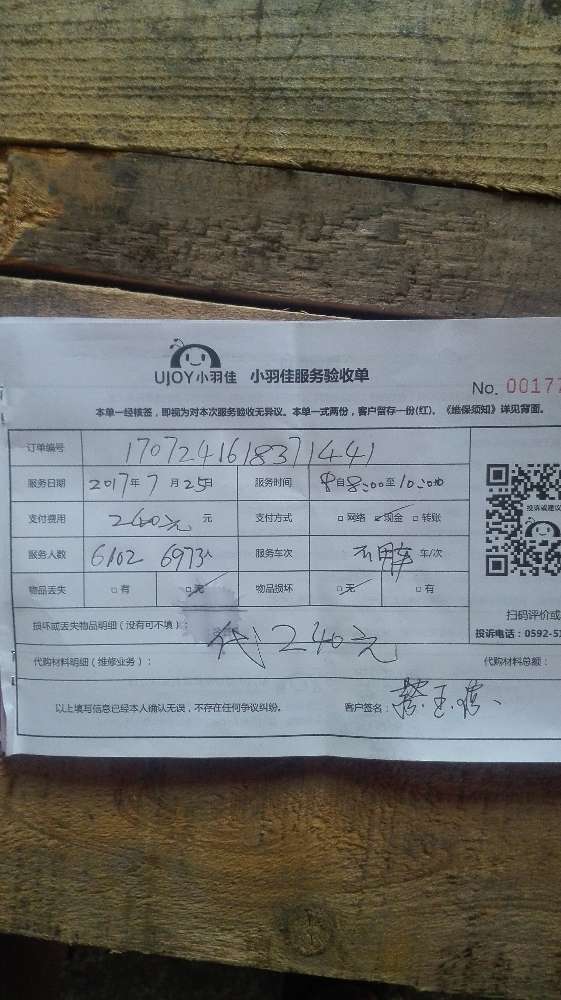 UJOY小羽佳 小羽佳服务验收单
No. 00177
本单一经核签，即视为对本次服务验收无异议。本单一式两份，客户留存一份(红)。《维保须知》详见背面。
订单编号 1707241618371441
服务日期 2017年7月25日 服务时间 自8:00至10:00
支付费用 240元 元 支付方式 □网络 ☑现金 □转账
服务人数 6102 6973人 服务车次 不用车 车/次
物品丢失 □有 ☑无 物品损坏 ☑无 □有
投诉或建议
损坏或丢失物品明细（没有可不填）：
代240元
扫码评价或
投诉电话：0592-5
代购材料明细（维修业务）： 代购材料总额：
以上填写信息已经本人确认无误，不存在任何争议纠纷。 客户签名：